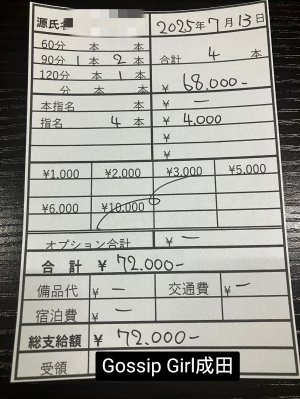 源氏名 2025年7月13日
60分 本 本
90分 1本 2本 合計 4 本
120分 本 1本
分 本 本 ¥ 68,000-
本指名 名 ¥ ー
指名 4 本 ¥ 4,000
¥
¥
¥1,000 ¥2,000 ¥3,000 ¥5,000
¥6,000 ¥10,000
オプション合計 ¥ ー
合計 ¥ 72,000-
備品代 ¥ ー 交通費 ¥ ー
宿泊費 ¥ ー
総支給額 ¥ 72,000-
受領
Gossip Girl成田